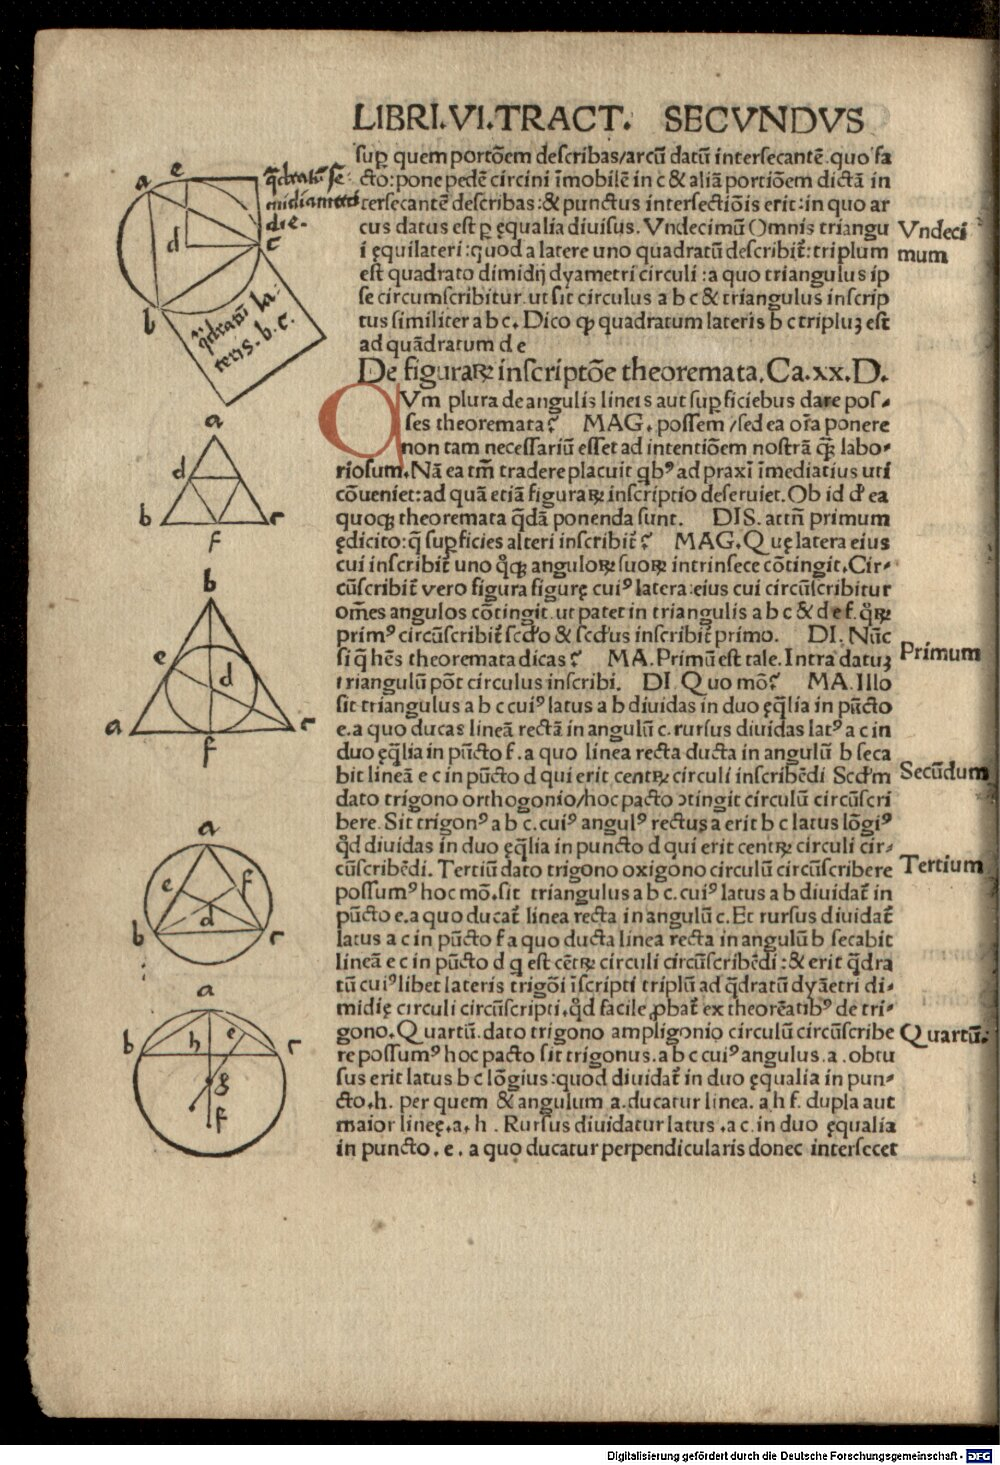 LIBRI.VI.TRACT. SECVNDVS
sup̱ quem portōem describas/arcū datū intersecantē. quo fa
cto: pone pedē circini īmobilē in c & aliā portiōem dictā in
tersecantē describas: & punctus intersectiōis erit: in quo ar
cus datus est p̱ ęqualia diuisus. Vndecimū Omnis triangu
i ęquilateri: quod a latere uno quadratū describit̄: triplum
est quadrato dimidij dyametri circuli : a quo triangulus ip
se circumscribitur. ut sit circulus a b c & triangulus inscrip
tus similiter a b c. Dico ꝙ quadratum lateris b c tripluꝫ est
ad quādratum d e
Vndeci
mum
q̄dratū se
midiametri
d.e.
q̄dratū la-
teris. b. c.
a e d c b
De figuraꝝ inscriptōe theoremata. Ca.xx.D.
QVm plura de angulis lineis aut sup̱ficiebus dare pos-
ses theoremata? MAG. possem /sed ea oīa ponere
non tam necessariū esset ad intentiōem nostrā q̄ꝫ labo-
riosum. Nā ea tm̄ tradere placuit qbꝰ ad praxī īmediatius uti
cōueniet: ad quā etiā figuraꝝ inscriptio deseruiet. Ob id đ ea
quoqꝫ theoremata q̄dā ponenda sunt. DIS. attn̄ primum
ędicito: q̄ sup̱ficies alteri inscribit̄? MAG. Quę latera eius
cui inscribit̄ uno q̊qꝫ anguloꝝ suoꝝ intrinsece cōtingit. Cir-
cūscribit̄ vero figura figurę cuiꝰ latera: eius cui circūscribitur
om̄es angulos cōtingit. ut patet in triangulis a b c & d e f. q̄ꝝ
primꝰ circūscribit̄ scđo & scđus inscribit̄ primo. DI. Nūc
si q̄ hēs theoremata dicas? MA. Primū est tale. Intra datuꝫ
triangulū pōt circulus inscribi. DI. Quo mō? MA. Illo
sit triangulus a b c cuiꝰ latus a b diuidas in duo ęq̄lia in pūcto
e. a quo ducas lineā rectā in angulū c. rursus diuidas latꝰ a c in
duo ęq̄lia in pūcto f. a quo linea recta ducta in angulū b seca
bit lineā e c in pūcto d qui erit centꝝ circuli inscribēdi Scđm
dato trigono orthogonio/hoc pacto ↄtingit circulū circūscri
bere. Sit trigonꝰ a b c. cuiꝰ angulꝰ rectus a erit b c latus lōgiꝰ
q̊d diuidas in duo ęq̄lia in puncto d qui erit centꝝ circuli cir-
cūscribēdi. Tertiū dato trigono oxigono circulū circūscribere
possumꝰ hoc mō. sit triangulus a b c. cuiꝰ latus a b diuidat̄ in
pūcto e. a quo ducat̄ linea recta in angulū c. Et rursus diuidat̄
latus a c in pūcto f a quo ducta linea recta in angulū b secabit
lineā e c in pūcto d q est cētꝝ circuli circūscribēdi : & erit q̄dra
tū cuiꝰlibet lateris trigōi īscripti triplū ad q̄dratū dyāetri di-
midię circuli circūscripti. q̊d facile ꝓbat̄ ex theorēatibꝰ de tri-
gono. Quartū. dato trigono ampligonio circulū circūscribe
re possumꝰ hoc pacto sit trigonus. a b c cuiꝰ angulus. a . obtu
sus erit latus b c lōgius: quod diuidat̄ in duo ęqualia in pun-
cto. h. per quem & angulum a. ducatur linea. a h f. dupla aut
maior lineę. a. h . Rursus diuidatur latus . a c. in duo ęqualia
in puncto . e . a quo ducatur perpendicularis donec intersecet
Primum
Secūdum
Tertium
Quartū.
a d b c f
b e d a c f
a e f d b c
a b h e c g f
Digitalisierung gefördert durch die Deutsche Forschungsgemeinschaft - DFG